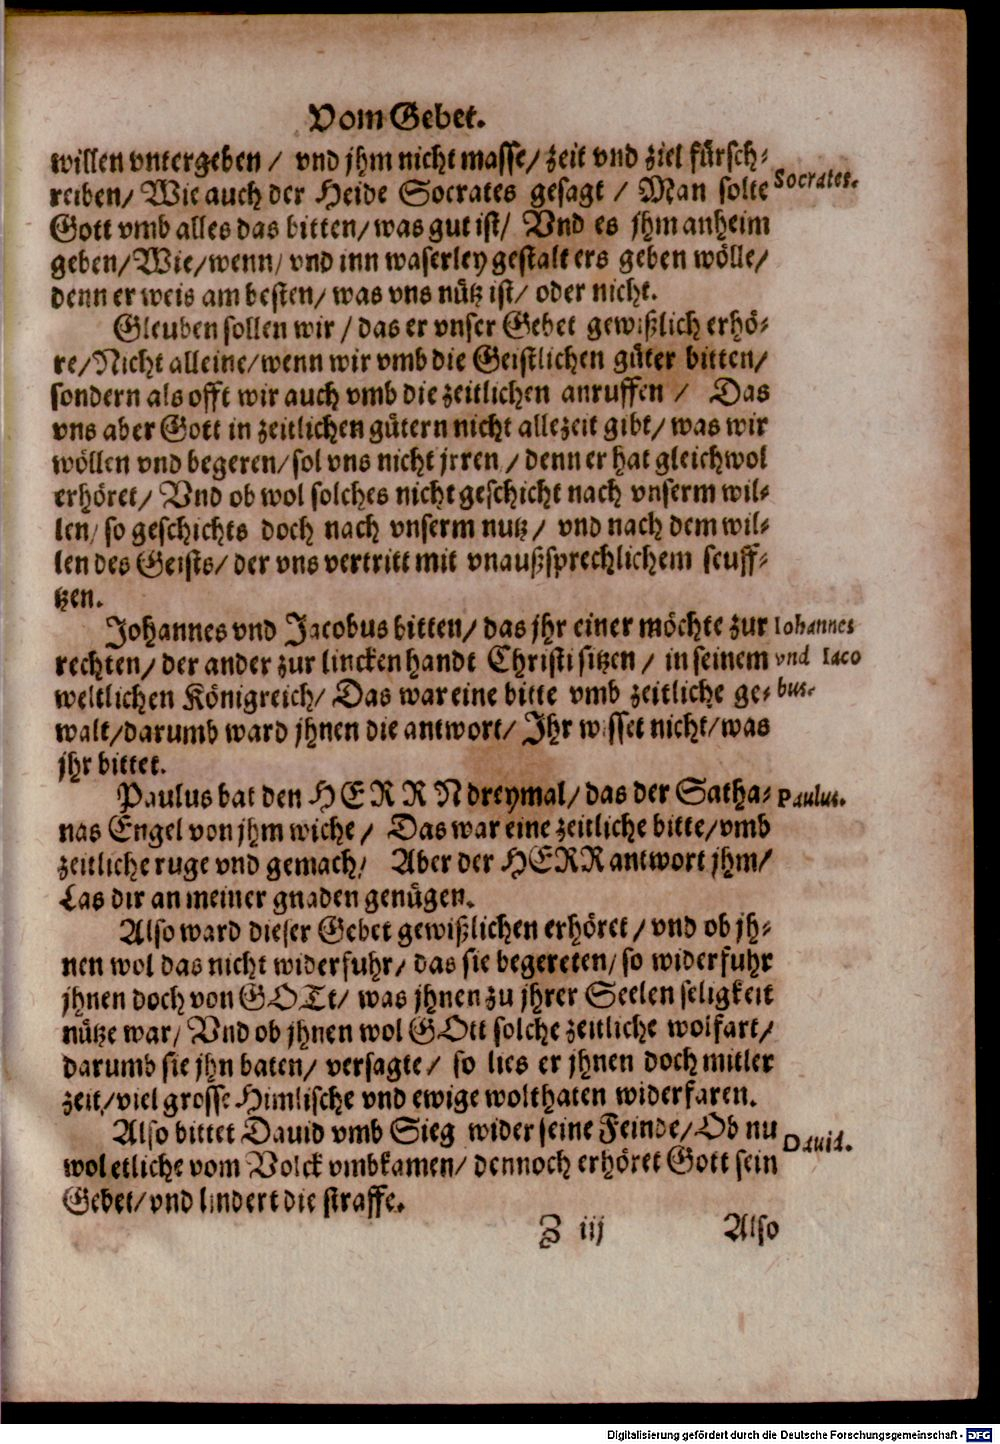 Vom Gebet.
willen vntergeben / vnd jhm nicht masse/ zeit vnd ziel fürsch-
reiben/ Wie auch der Heide Socrates gesagt / Man solte
Socrates.
Gott vmb alles das bitten/ was gut ist/ Vnd es jhm anheim
geben/ Wie/ wenn/ vnd inn waserley gestalt ers geben wölle/
denn er weis am besten/ was vns nütz ist/ oder nicht.
Gleuben sollen wir / das er vnser Gebet gewißlich erhö-
re/ Nicht alleine/ wenn wir vmb die Geistlichen güter bitten/
sondern als offt wir auch vmb die zeitlichen anruffen / Das
vns aber Gott in zeitlichen gütern nicht allezeit gibt/ was wir
wöllen vnd begeren/ sol vns nicht jrren / denn er hat gleichwol
erhöret/ Vnd ob wol solches nicht geschicht nach vnserm wil-
len/ so geschichts doch nach vnserm nutz / vnd nach dem wil-
len des Geists/ der vns vertritt mit vnaußsprechlichem seuff-
tzen.
Johannes vnd Jacobus bitten/ das jhr einer möchte zur
Iohannes
rechten/ der ander zur lincken handt Christi sitzen / in seinem
vnd Iaco
weltlichen Königreich/ Das war eine bitte vmb zeitliche ge-
bus.
walt/ darumb ward jhnen die antwort/ Jhr wisset nicht/ was
jhr bittet.
Paulus bat den HERRN dreymal/ das der Satha-
Paulus.
nas Engel von jhm wiche / Das war eine zeitliche bitte/ vmb
zeitliche ruge vnd gemach/ Aber der HERR antwort jhm/
Las dir an meiner gnaden genügen.
Also ward dieser Gebet gewißlichen erhöret / vnd ob jh-
nen wol das nicht widerfuhr/ das sie begereten/ so widerfuhr
jhnen doch von GOTt/ was jhnen zu jhrer Seelen seligkeit
nütze war/ Vnd ob jhnen wol GOtt solche zeitliche wolfart/
darumb sie jhn baten/ versagte/ so lies er jhnen doch mitler
zeit/ viel grosse Himlische vnd ewige wolthaten widerfaren.
Also bittet Dauid vmb Sieg wider seine Feinde/ Ob nu
Dauid.
wol etliche vom Volck vmbkamen/ dennoch erhöret Gott sein
Gebet/ vnd lindert die straffe.
Z iij Also
Digitalisierung gefördert durch die Deutsche Forschungsgemeinschaft - DFG